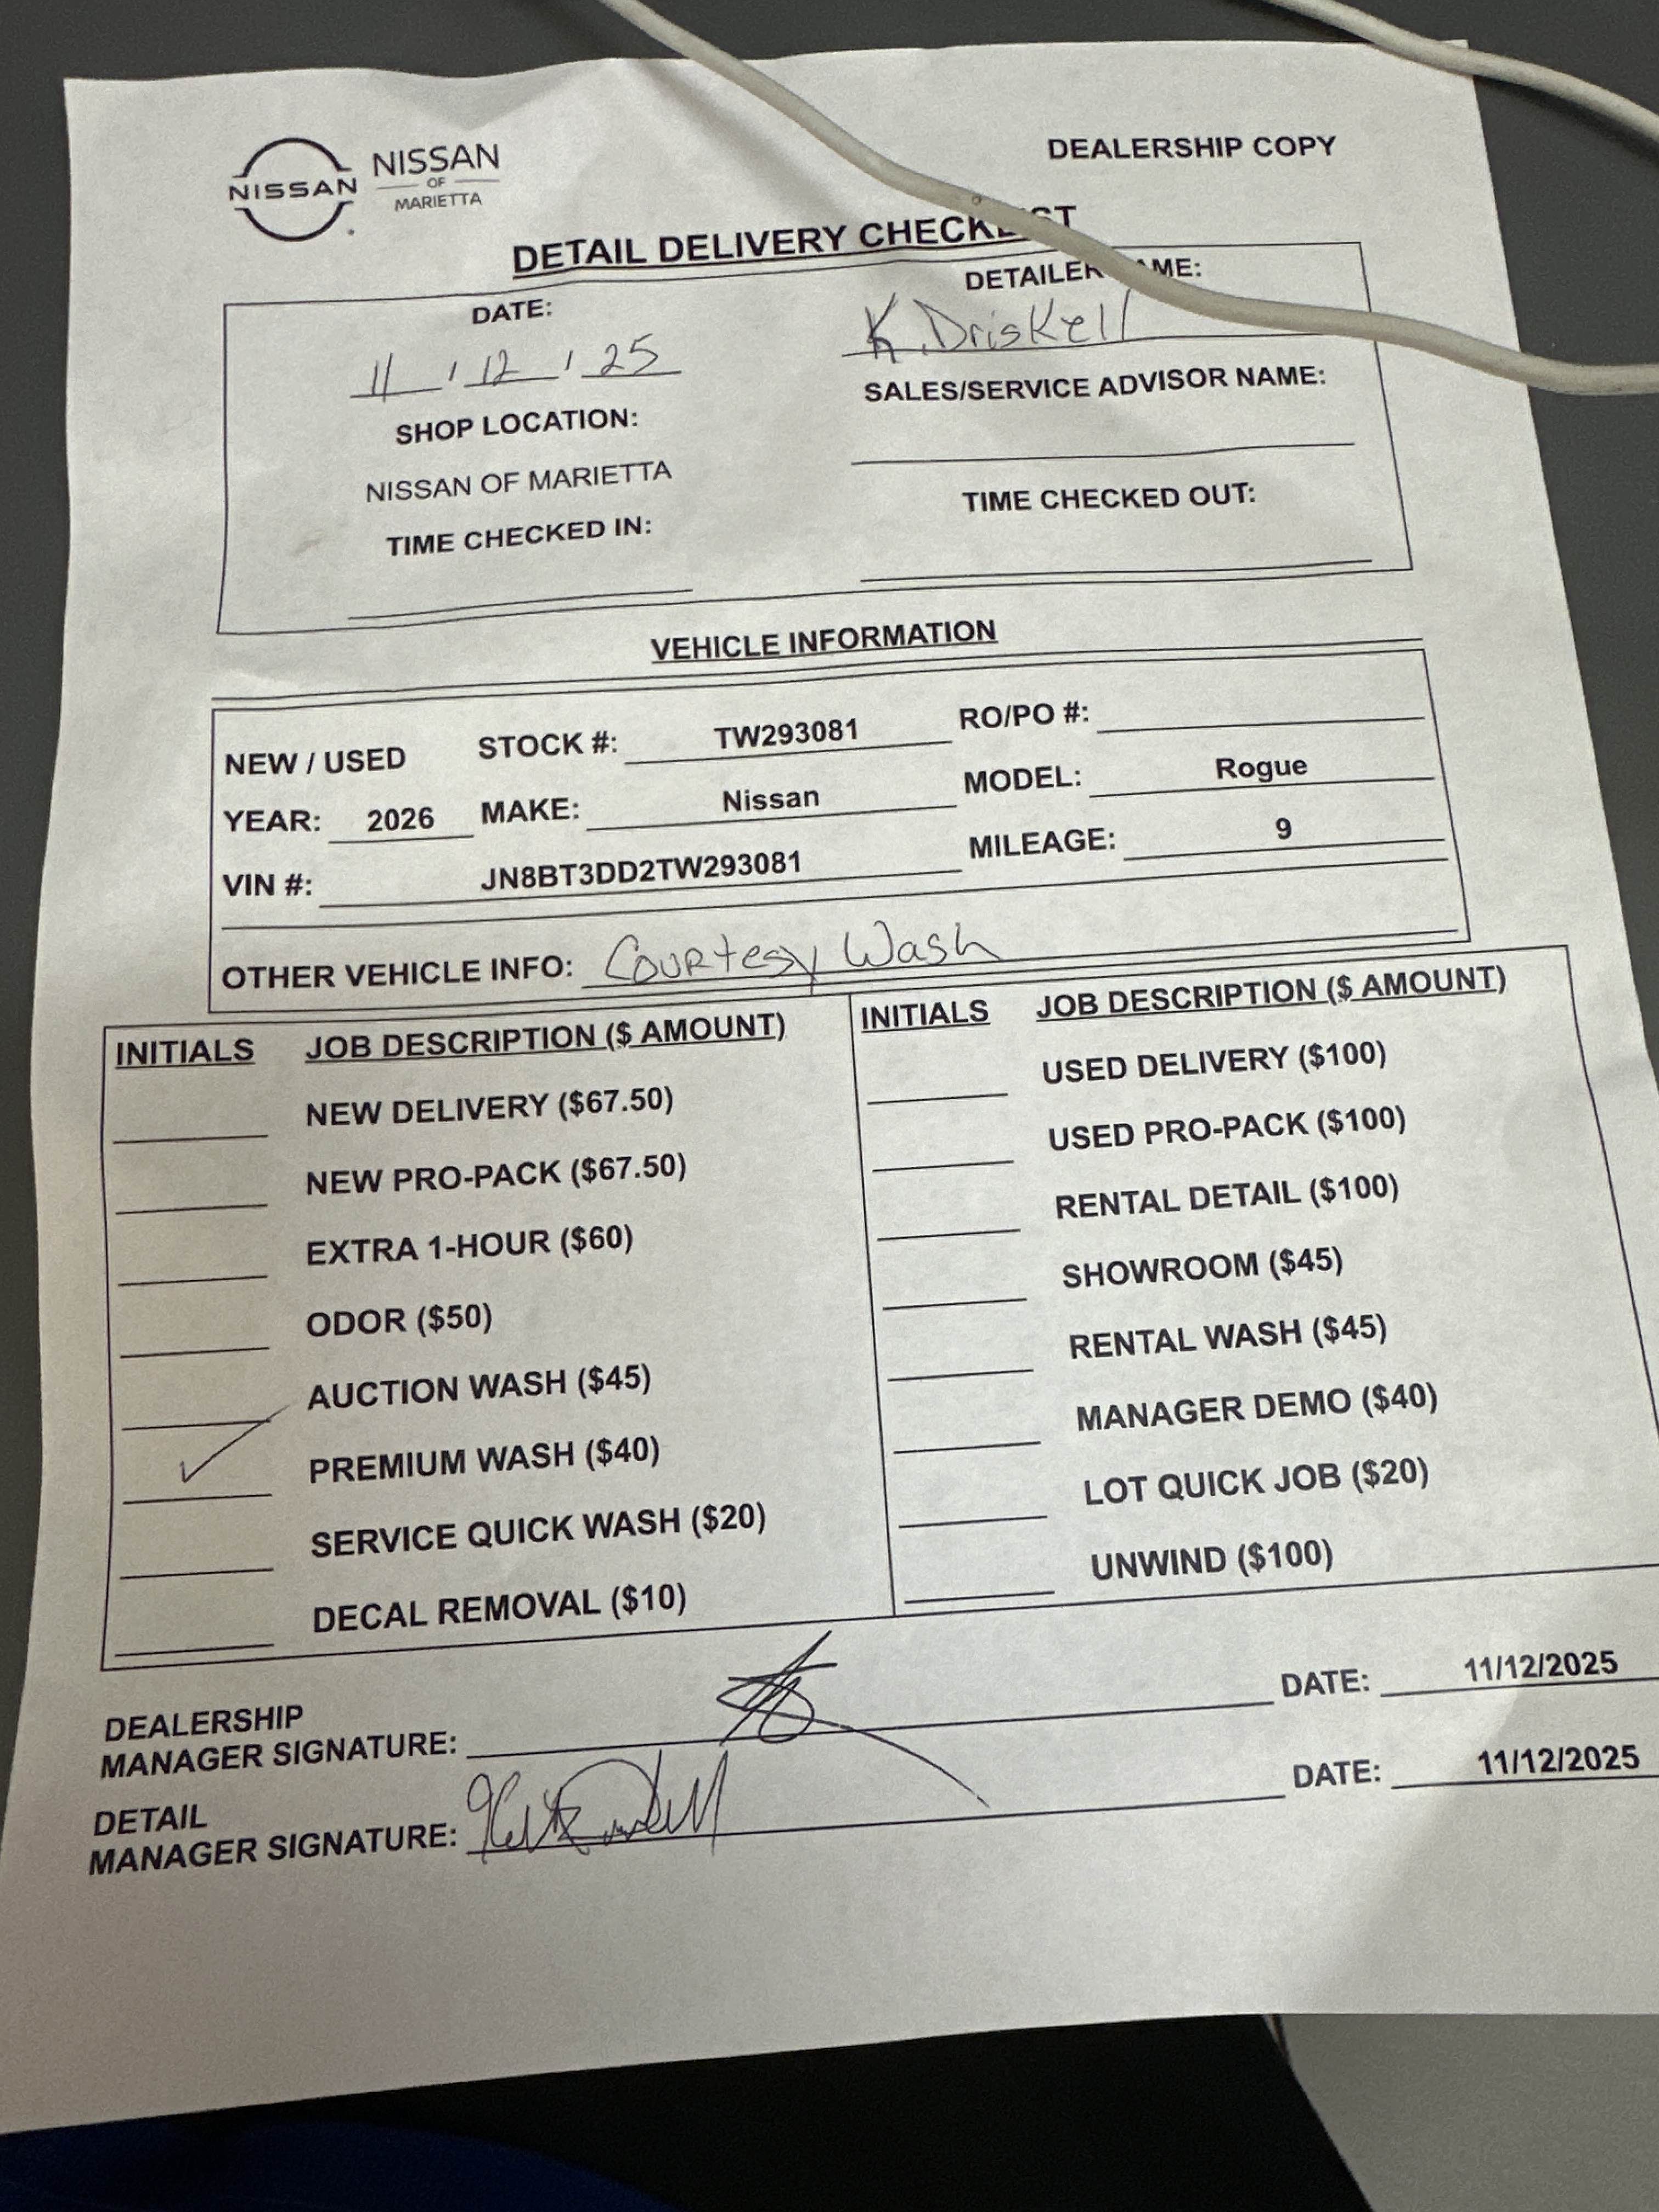 NISSAN
NISSAN
OF
MARIETTA
DEALERSHIP COPY
DETAIL DELIVERY CHECKLIST
DATE:
DETAILER NAME:
11 / 12 / 25
K. Driskell
SHOP LOCATION:
SALES/SERVICE ADVISOR NAME:
NISSAN OF MARIETTA
TIME CHECKED IN:
TIME CHECKED OUT:
VEHICLE INFORMATION
NEW / USED STOCK #: TW293081 RO/PO #:
YEAR: 2026 MAKE: Nissan MODEL: Rogue
VIN #: JN8BT3DD2TW293081 MILEAGE: 9
OTHER VEHICLE INFO: Courtesy Wash
INITIALS JOB DESCRIPTION ($ AMOUNT)
NEW DELIVERY ($67.50)
NEW PRO-PACK ($67.50)
EXTRA 1-HOUR ($60)
ODOR ($50)
AUCTION WASH ($45)
✓ PREMIUM WASH ($40)
SERVICE QUICK WASH ($20)
DECAL REMOVAL ($10)
INITIALS JOB DESCRIPTION ($ AMOUNT)
USED DELIVERY ($100)
USED PRO-PACK ($100)
RENTAL DETAIL ($100)
SHOWROOM ($45)
RENTAL WASH ($45)
MANAGER DEMO ($40)
LOT QUICK JOB ($20)
UNWIND ($100)
DEALERSHIP
MANAGER SIGNATURE: DATE: 11/12/2025
DETAIL
MANAGER SIGNATURE: DATE: 11/12/2025